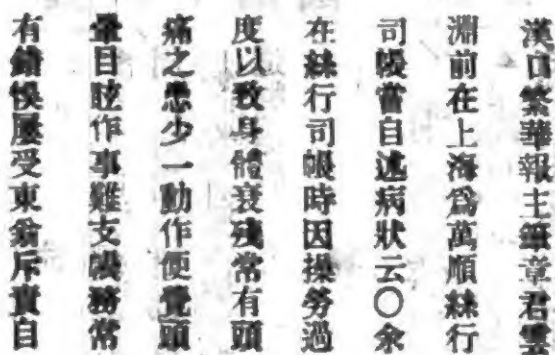 漢口繁華報主筆章君雲
淵前在上海爲萬順絲行
司帳嘗自述病狀云○余
在絲行司帳時因操勞過
度以致身體衰殘常有頭
痛之患少一動作便覺頭
暈目眩作事難支帳務常
有錯悞屢受東翁斥責自